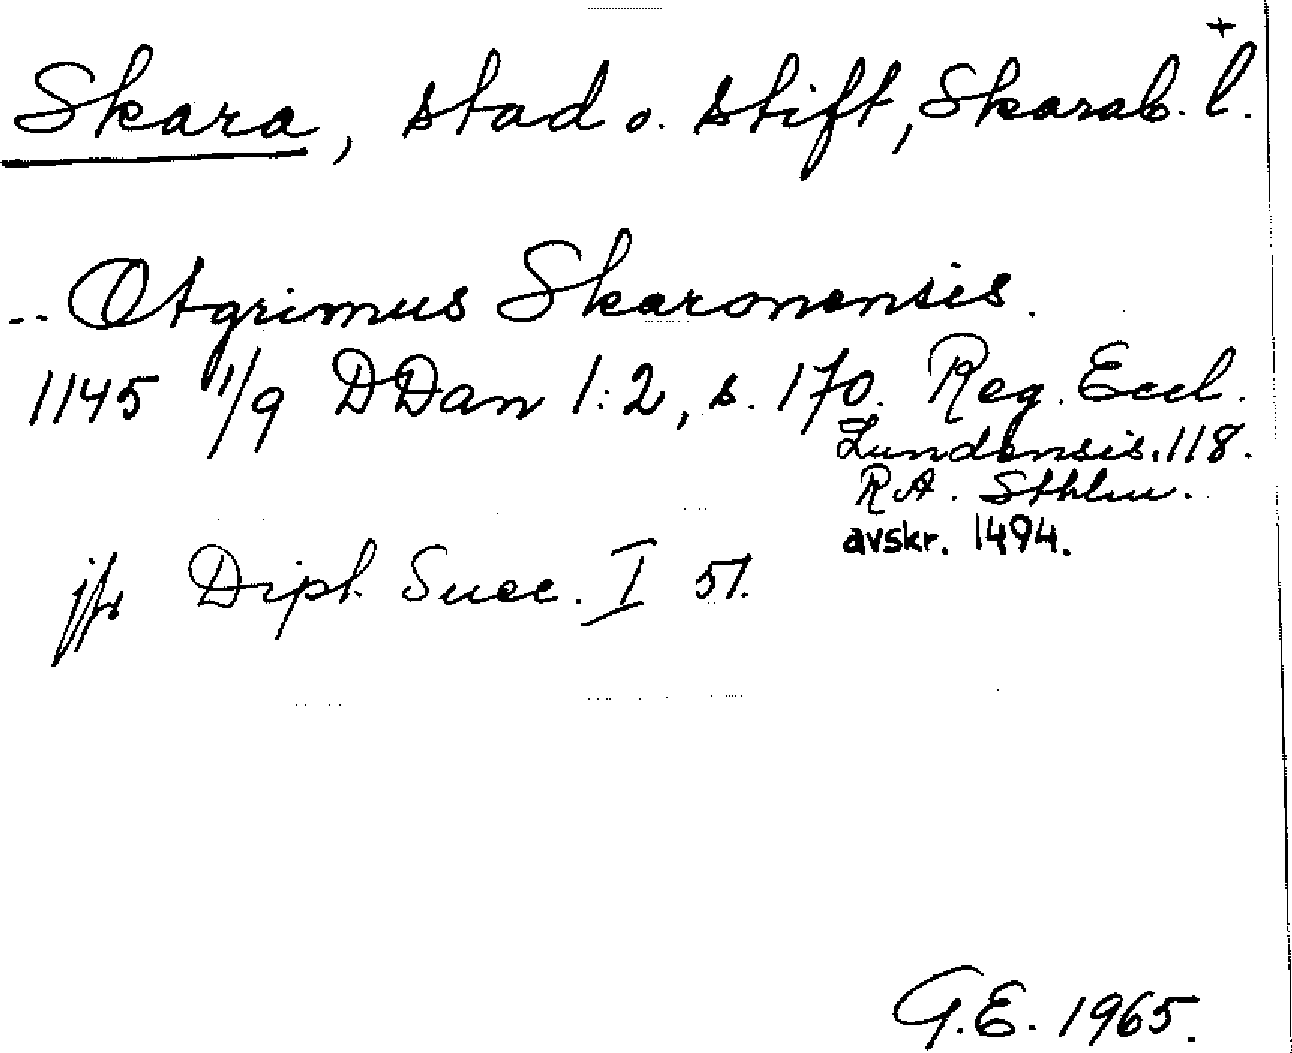 +
Skara, stad o. stift, Skarab. l.
-- Otgrimus Skaronensis.
1145 1/9 DDan 1:2, s. 170. Reg. Eccl.
Lundensis. 118.
R A. Sthlm.
avskr. 1494.
jfr Dipl. Suec. I 51.
G.E. 1965.